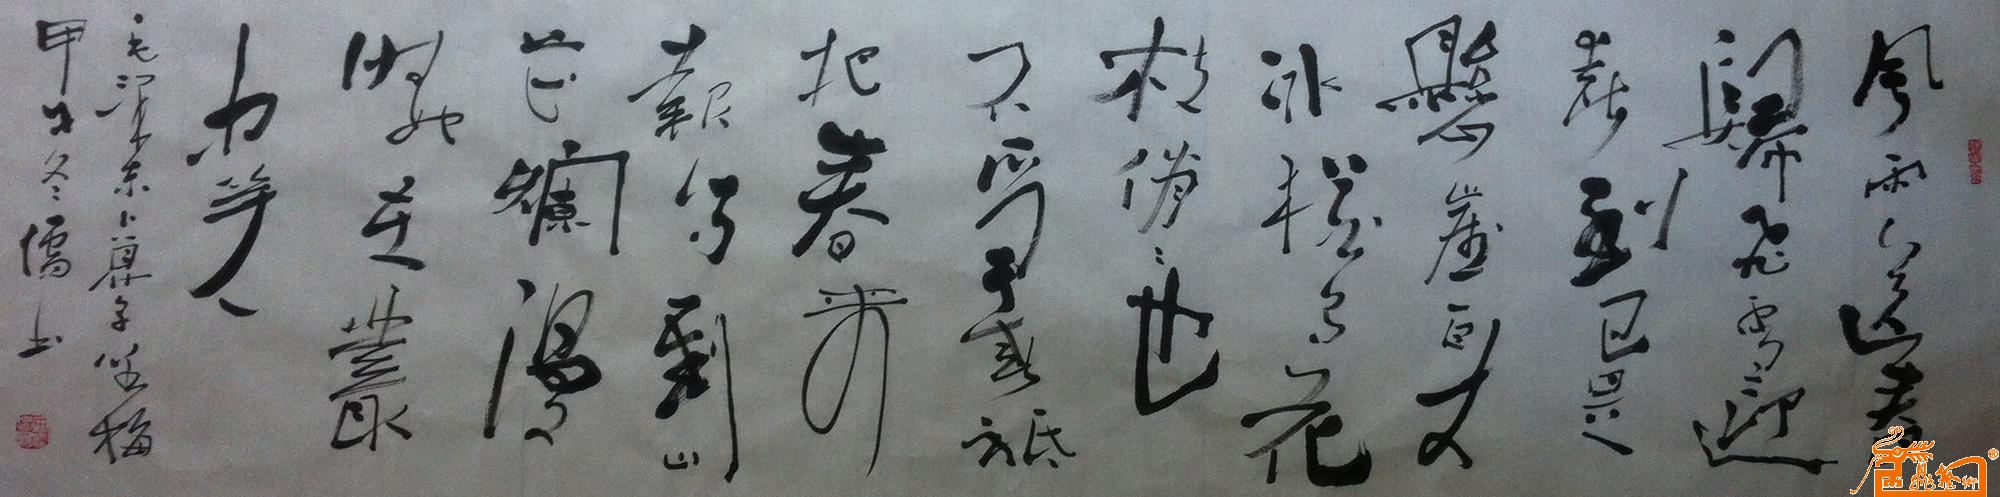 風雨送春
歸飛雪迎
春到已是
懸崖百丈
冰猶有花
枝俏俏也
不争春祗
把春來
報待到山
花爛漫
時她在叢
中笑
毛澤東卜算子咏梅
甲午冬儒上